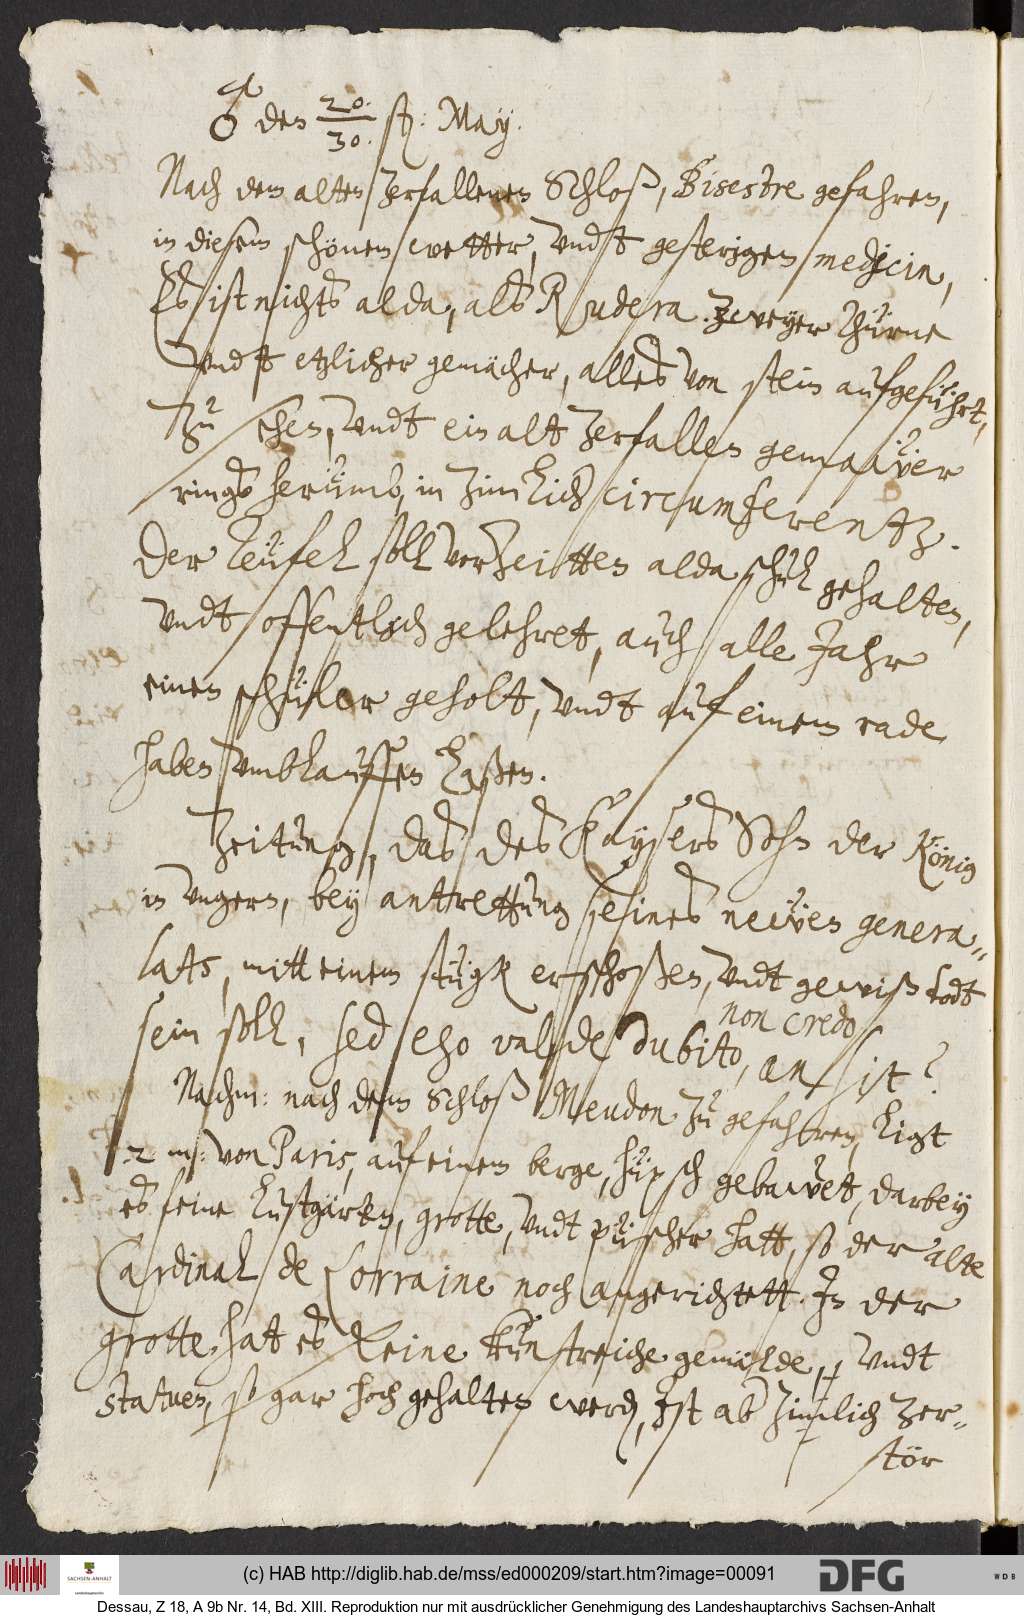 ♂ den 20./30. st: May.
Nach dem alten zerfallenen Schloß, Bisestre gefahren,
in diesem schönen wetter, vndt gesterigen medicin,
Es ist nichts alda, als Rudera zweyer Thürne
vndt etzlicher gemächer, alles von stein aufgeführt,
zu sehen, vndt ein alt zerfallen gemaüer
rings herümb, in zimlich circumferentz.
Der Teüfel soll vor zeitten alda schul gehalten,
vndt offentlich gelehret, auch alle Jahr
einen schüler geholt, vndt auf einem rade
haben vmblauffen laßen.
Zeitung, das des Kaysers Sohn der König
in Vngern, bey antrettung seines neẅen genera-
lats, mitt einem stügk erschoßen, vndt gewiß todt
sein soll, sed ego valde dubito, an sit?
non credo
Nachm: nach dem Schloß Meudon zu gefahren, ligt
2 m: von Paris, auf einem berge, hüpsch gebaẅet, darbey
es feine lustgärten, grotte, vndt püscher hatt, so der alte
Cardinal de Lorraine noch angerichtett. In der
grotte hat es keine kunstreiche gemälde, vndt
statuen, so gar hoch gehalten werd, Ist ab zimlich zer-
stör
(c) HAB http://diglib.hab.de/mss/ed000209/start.htm?image=00091
SACHSEN-ANHALT
DFG
WDB
Dessau, Z 18, A 9b Nr. 14, Bd. XIII. Reproduktion nur mit ausdrücklicher Genehmigung des Landeshauptarchivs Sachsen-Anhalt